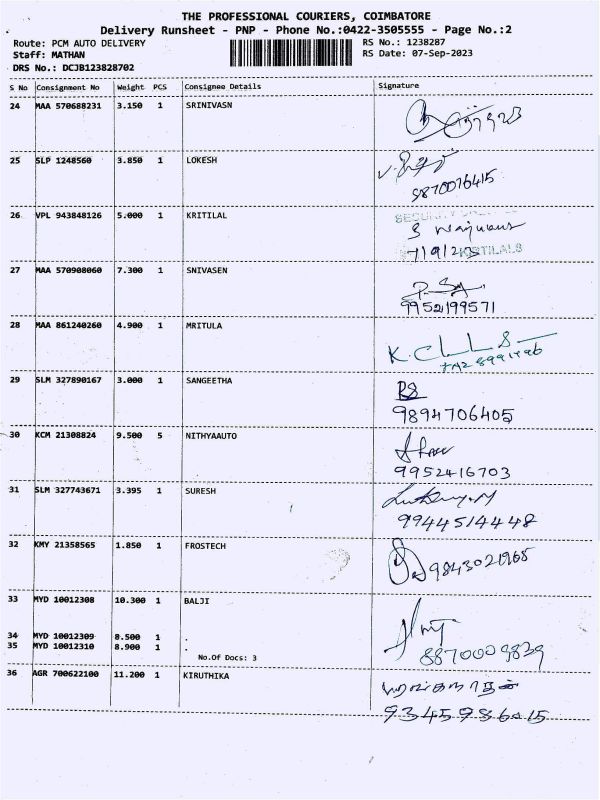 THE PROFESSIONAL COURIERS, COIMBATORE
Delivery Runsheet - PNP - Phone No.:0422-3505555 - Page No.:2
Route: PCM AUTO DELIVERY RS No.: 1238287
Staff: MATHAN RS Date: 07-Sep-2023
DRS No.: DCJB123828702
S No Consignment No Weight PCS Consignee Details Signature
24 MAA 570688231 3.150 1 SRINIVASN
25 SLP 1248560 3.850 1 LOKESH
9870076415
26 VPL 943848126 5.000 1 KRITILAL
7/9/23
27 MAA 570908060 7.300 1 SNIVASEN
9952199571
28 MAA 861240260 4.900 1 MRITULA
29 SLM 327890167 3.000 1 SANGEETHA
RS
9894706405
30 KCM 21308824 9.500 5 NITHYAAUTO
9952416703
31 SLM 327743671 3.395 1 SURESH
9944514448
32 KMY 21358565 1.850 1 FROSTECH
9843021968
33 MYD 10012308 10.300 1 BALJI
34 MYD 10012309 8.500 1 .
35 MYD 10012310 8.900 1 .
No.Of Docs: 3
8870009839
36 AGR 700622100 11.200 1 KIRUTHIKA
ரங்கநாதன்
9345986015